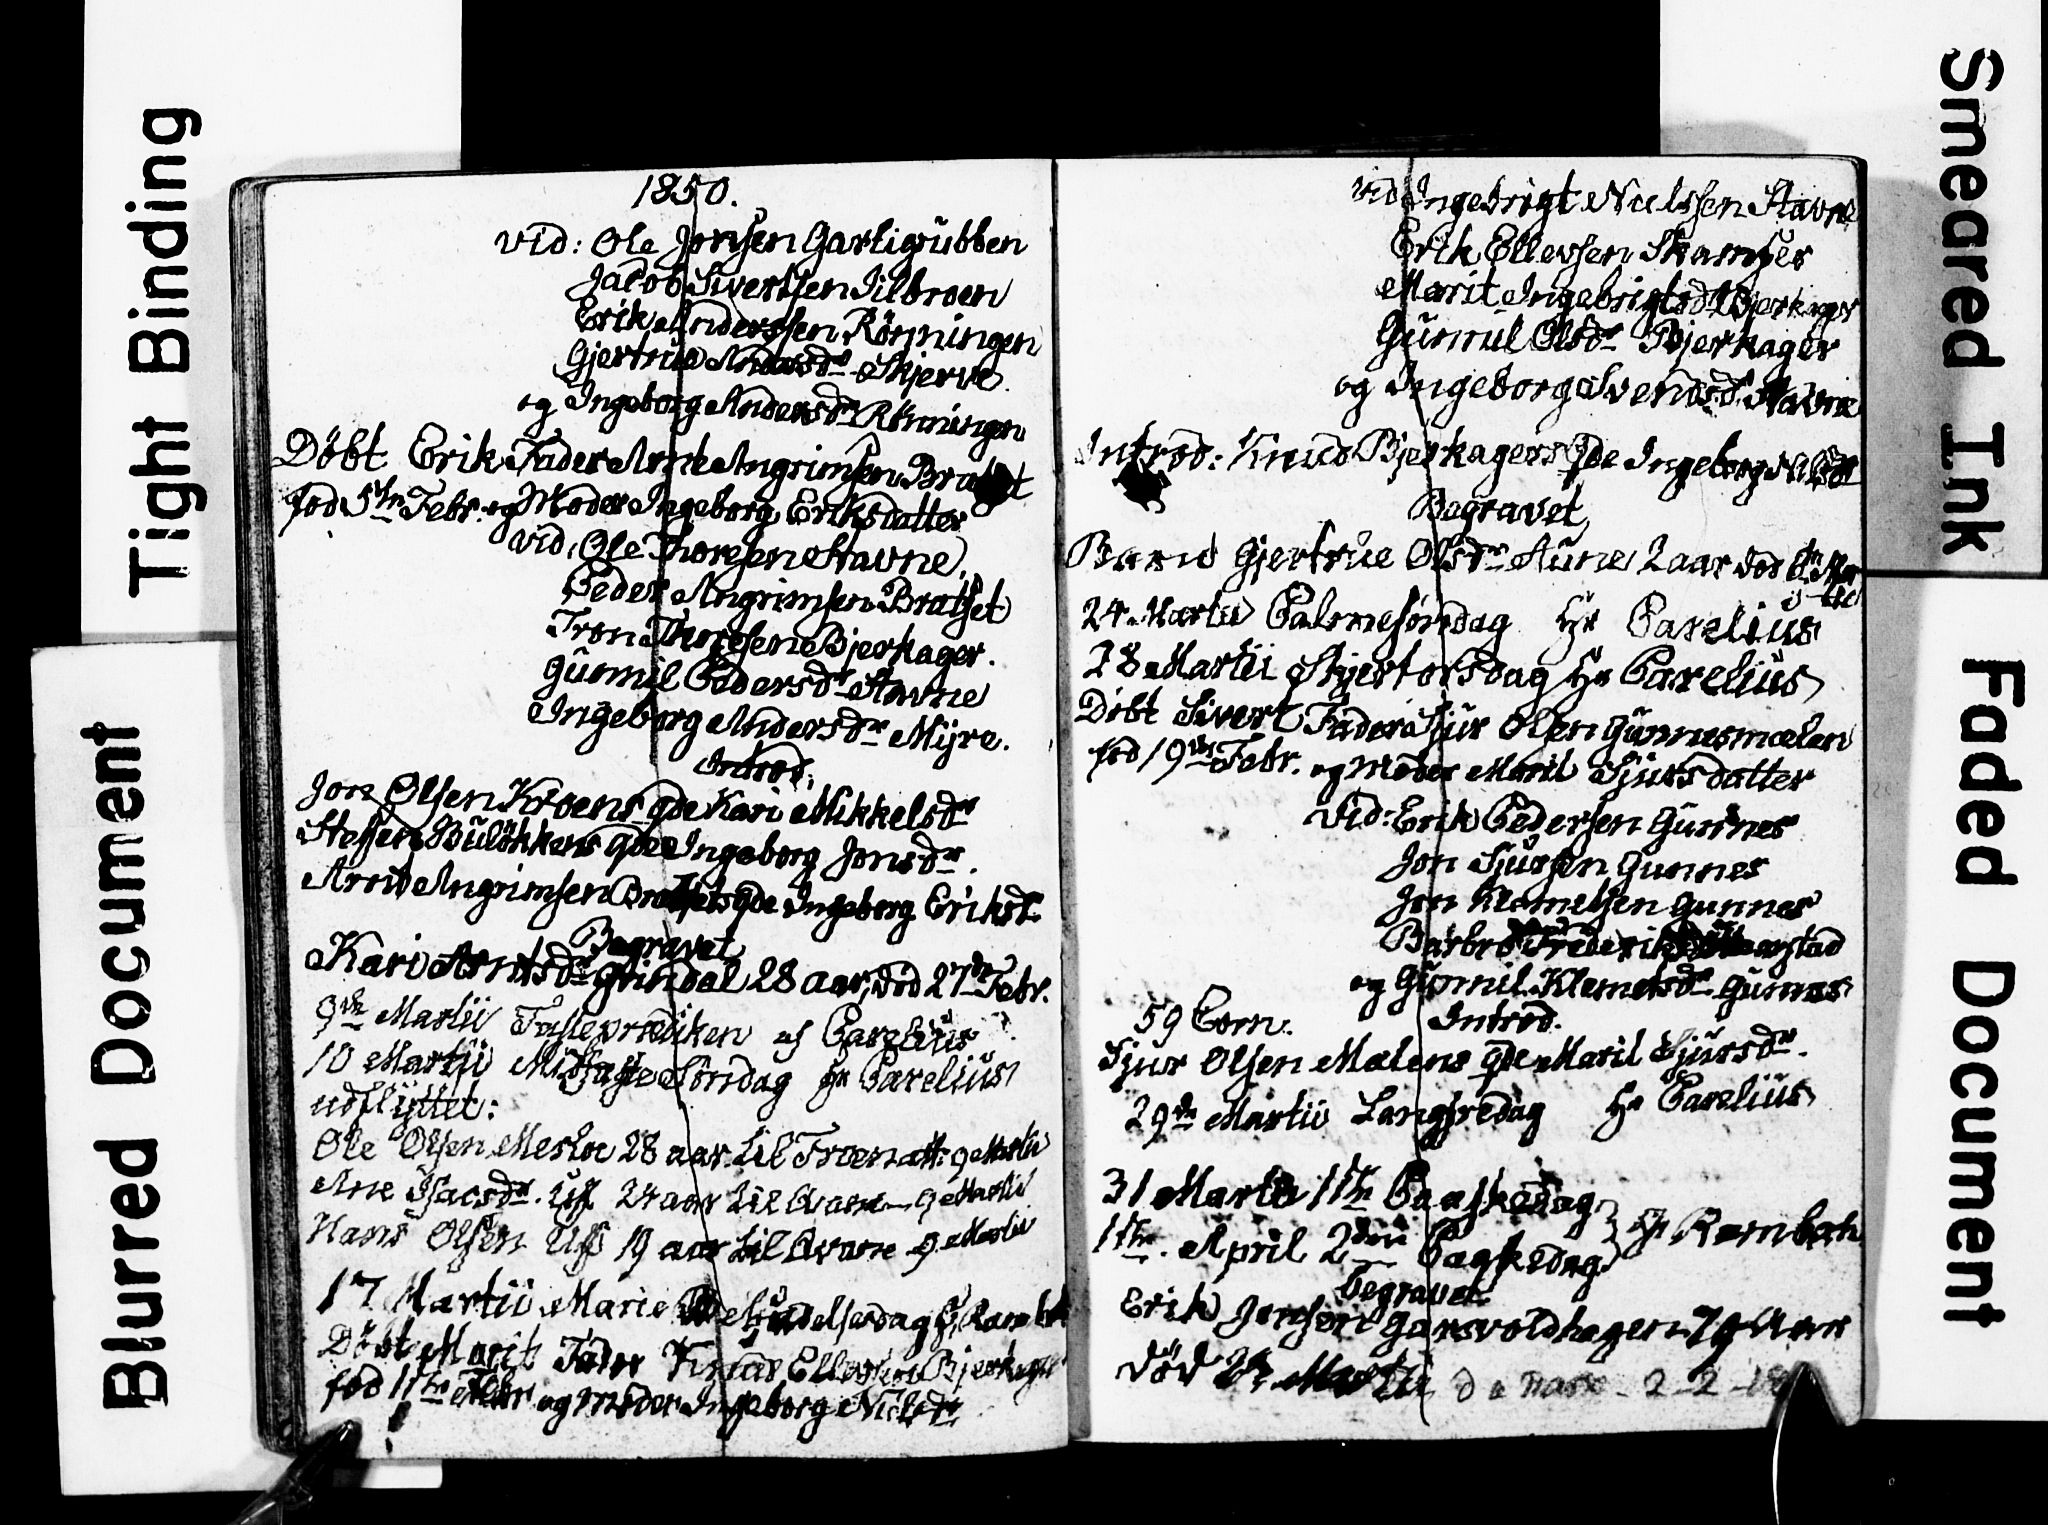 Tight Binding
Blurred Document
Smeared Ink
Faded Document
1850.
vid: Ole Jonsen Garligrübben
Jacob Sivertsen Iilbroen
Erik Anderssen Rönningen
Gjertrüe Skjerve
og Ingeborg Andersdr Rönningen
Döbt Erik Fader Arnt Angrimsen Bratset
fod 5te Febr. og Moder Ingeborg Eriksdatter
vid: Ole Thoresen Stavne
Peder Angrimsen Bratset
Tron Thoresen Bjerkager.
Gunnil Pedersdr Stavne
Ingeborg Andersdr Mÿre.
Introd.
Jon Olsen Kroens qde Kari Mikkelsdr
Steffen Bulökkens qde Ingeborg Jonsdr.
Arnt Angrimsen Bratsets qde Ingeborg Eriksdr
Begravet
Kari Arntsdr Grindal 28 aar, död 27de Febr.
9de Martii Fasteprædiken af Parelius
10 Martii Midfaste Söndag Hr Parelius
udflÿttet:
Ole Olsen Mesloe 28 aar til Troen att: 9 Martii
Ane Isacsdr. Uff 24 aar til Qvame 9 Martii
Hans Olsen Uff 19 aar til Qvame 9 Martii
17 Martii Marie Bebudelsesdag Hr Rambech
Döbt Marit Fader Knud Ellevsen Bjerkager
fod 11te Febr og moder Ingeborg Nielsdr
vid Ingebrigt Nielssen Stavne
Erik Ellevsen Skamfer
Marit Ingebrigtsdr Bjerkager
Gunnil Olsdr Bjerkager
og Ingeborg Svendsdr Stavne
Introd: Knud Bjerkagers qde Ingeborg Nilsdr
Begravet
Gjertrüe Olsdr Aune 2 aar död
24. Martii Palmesöndag Hr Parelius
28 Martii Skjertorsdag Hr Parelius
Döbt Sivert Fader Sjur Olsen Gunnesmælen
fod 19de Febr. og moder Marit Sjursdatter
vid: Erik Pedersen Gunnes
Jon Sjursen Gunnes
Jon Klemetsen Gunnes
Barbro
og Gunnil Klemetsdr Gunnes
59 Com. Introd.
Sjur Olsen Mælens qde Marit Sjursdr.
29de Martii Langfredag Hr Parelius
31 Martii 1ste Paaskedag
1ste April 2den Paaskedag } Hr Rambech
begravet
Erik Jonsen Garsvoldhagen 79 Aar
död Martii